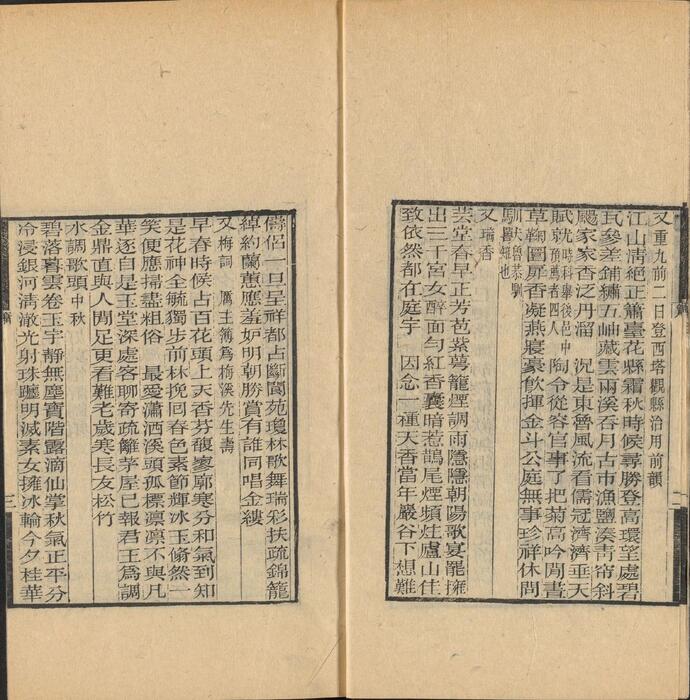 又重九前二日登西塔觀縣治用前韻
江山淸絶正蕭臺花縣霜秋時候尋勝登高環望處碧
瓦參差鋪繡五岫藏雲兩溪吞月古市漁鹽湊靑帘斜
颺家家香泛丹溜　況是東魯風流看儒冠濟濟垂天
賦就時科舉後邑中預京薦者四人陶令從容官事了把菊高吟閒晝
草鞠圜扉香凝燕寢豪飮揮金斗公庭無事珍祥休問
馴獸
又瑞香
芸堂春早正芳苞紫萼籠煙調雨隱隱朝陽歌宴罷擁
出三千宮女醉面勻紅香囊暗惹鵲尾煙頻炷廬山佳
致依然都在庭宇　因念一種天香當年巖谷下想難
儔侶一旦呈祥都占斷閬苑瓊林歌舞瑞彩扶疏錦籠
綽約蘭蕙應羞妒明朝勝賞有誰同唱金縷
又梅詞　厲主簿爲梅溪先生壽
早春時候占百花頭上天香芬馥寥廓寒分和氣到知
是花神全毓獨步前林挽回春色素節輝冰玉翛然一
笑便應掃盡粗俗　最愛瀟洒溪頭孤標凛凛不與凡
華逐自是玉堂深處客聊寄疏籬茅屋已報君王爲調
金鼎直與人閒足更看難老歲寒長友松竹
水調歌頭中秋
碧落暮雲卷玉宇靜無塵寶階露滴仙掌秋氣正平分
冷浸銀河淸澈光射珠躔明滅素女擁冰輪今夕桂華
三